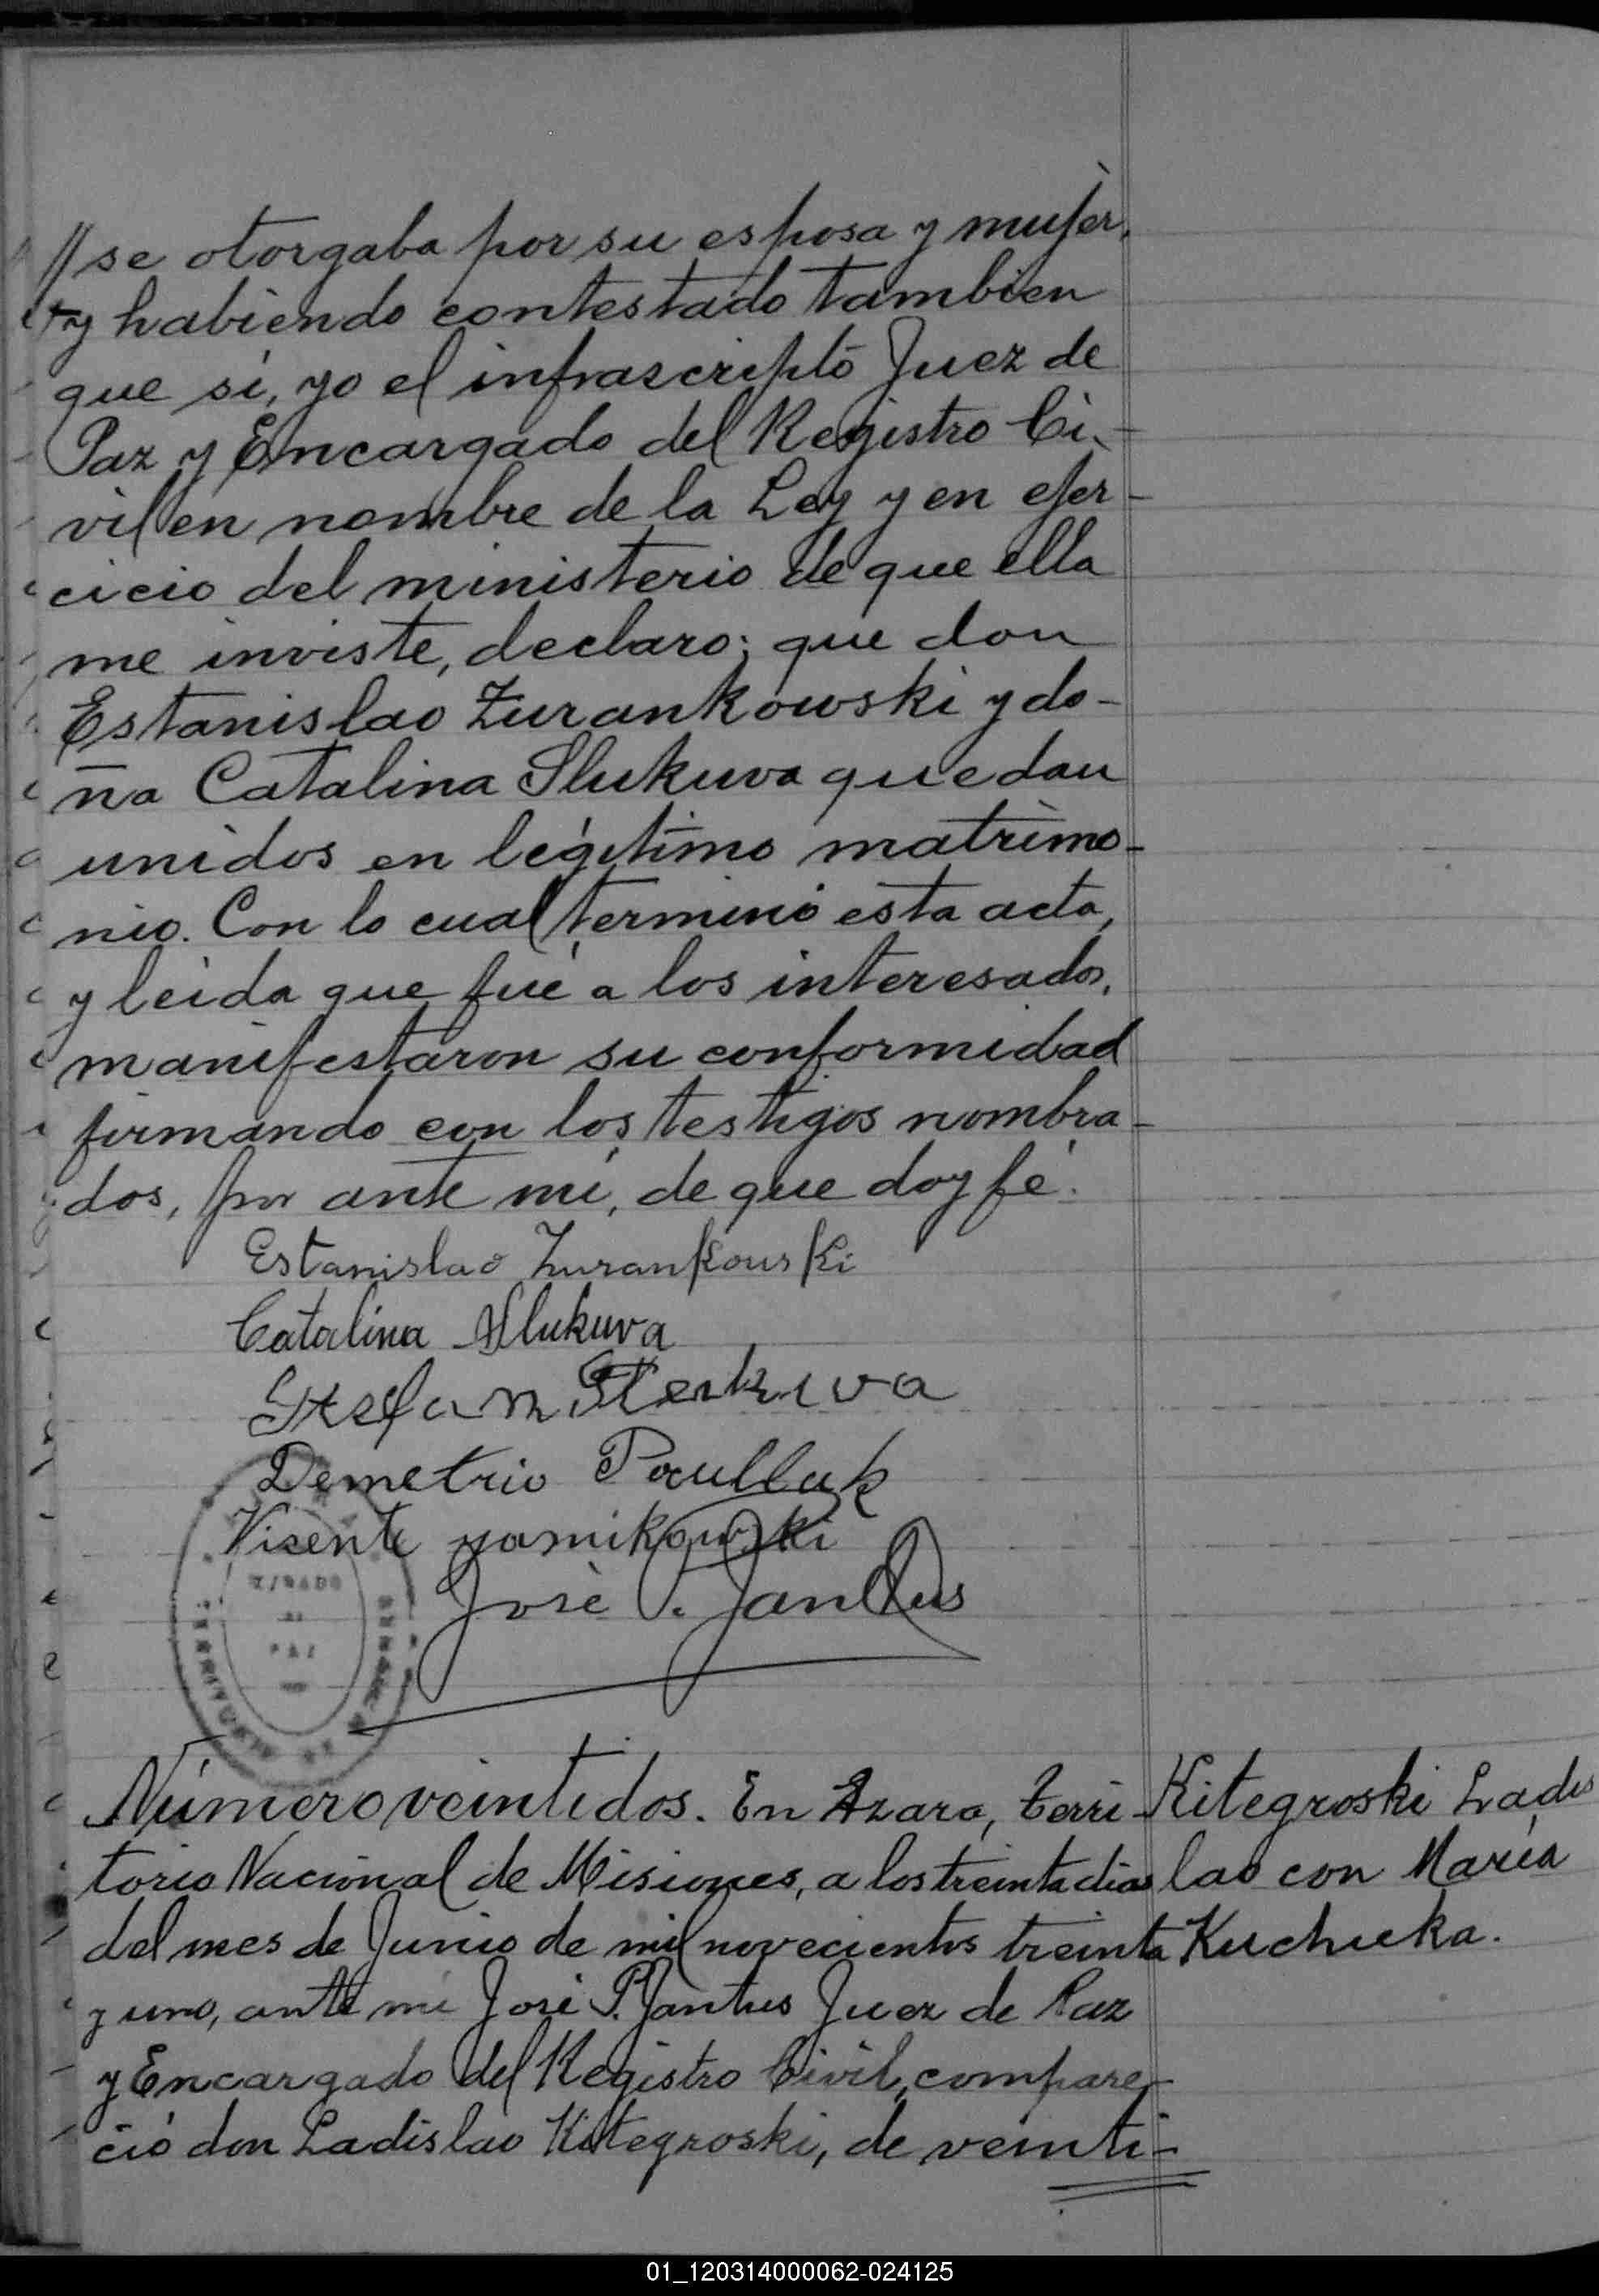 // se otorgaba por su esposa y mujer,
y habiendo contestado tambien
que sí, yo el infrascripto Juez de
Paz y Encargado del Registro Ci-
vil en nombre de la Ley y en ejer-
cicio del ministerio de que ella
me inviste, declaro: que don
Estanislao Zurankowski y do-
ña Catalina Slukuva quedan
unidos en legítimo matrimo-
nio. Con lo cual terminó esta acta,
y leida que fué a los interesados,
manifestaron su conformidad
firmando con los testigos nombra-
dos, por ante mí, de que doy fé.
Estanislao Zurankouski
Catalina Slukuva
Demetrio
Visente
José P. Jantus
JUZGADO
DE
PAZ
TERRITORIO DE MISIONES
Número veintidos. En Azara, Terri-
torio Nacional de Misiones, a los treinta dias
del mes de Junio de mil novecientos treinta
y uno, ante mí José P. Jantus Juez de Paz
y Encargado del Registro Civil, compare-
ció don Ladislao Kitegroski, de veinti-
Kitegroski Ladis
lao con María
Kuchucka.
01_120314000062-024125